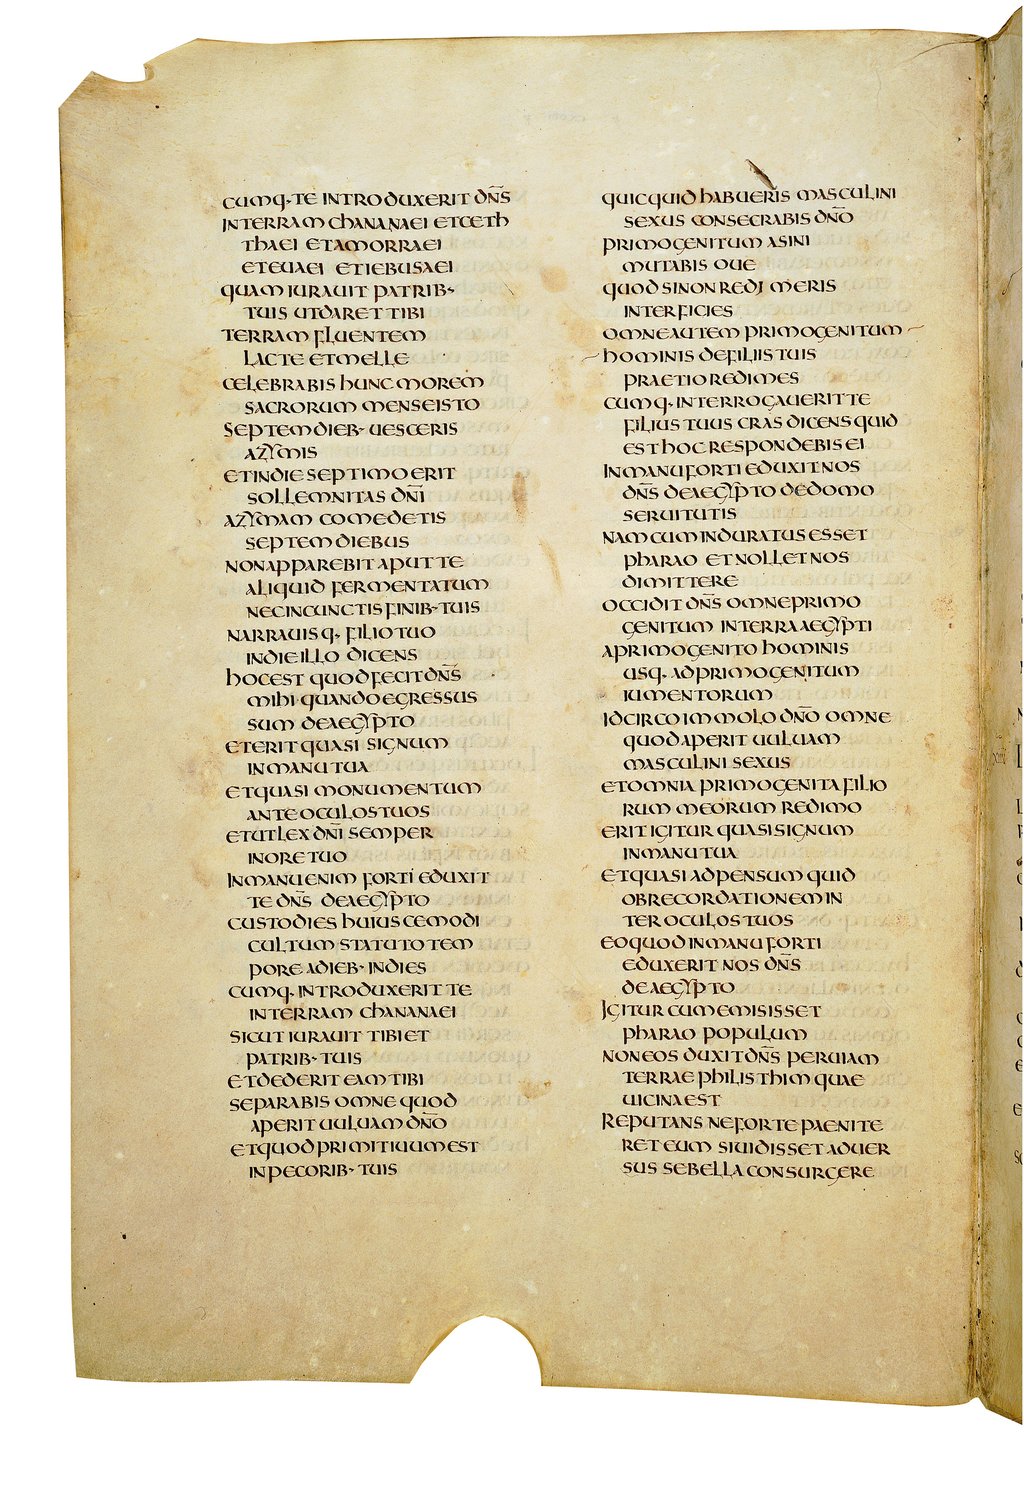 cumq· te introduxerit dn̄s
in terram chananaei et ceth
thaei et amorraei
et euaei et iebusaei
quam iurauit patrib·
tuis ut daret tibi
terram fluentem
lacte et melle
celebrabis hunc morem
sacrorum mense isto
septem dieb· uesceris
azymis
et in die septimo erit
sollemnitas dn̄i
azymam comedetis
septem diebus
non apparebit aput te
aliquid fermentatum
nec in cunctis finib· tuis
narrauisq· filio tuo
in die illo dicens
hoc est quod fecit dn̄s
mihi quando egressus
sum de aegypto
et erit quasi signum
in manu tua
et quasi monumentum
ante oculos tuos
et ut lex dn̄i semper
in ore tuo
in manu enim forti eduxit
te dn̄s de aegypto
custodies huiuscemodi
cultum statuto tem
pore a dieb· in dies
cumq· introduxerit te
in terram chananaei
sicut iurauit tibi et
patrib· tuis
et dederit eam tibi
separabis omne quod
aperit uuluam dn̄o
et quod primitiuum est
in pecorib· tuis
quicquid habueris masculini
sexus consecrabis dn̄o
primogenitum asini
mutabis oue
quod si non redimeris
interficies
omne autem primogenitum
hominis de filiis tuis
praetio redimes
cumq· interrogauerit te
filius tuus cras dicens quid
est hoc respondebis ei
in manu forti eduxit nos
dn̄s de aegypto de domo
seruitutis
nam cum induratus esset
pharao et nollet nos
dimittere
occidit dn̄s omne primo
genitum in terra aegypti
a primogenito hominis
usq· ad primogenitum
iumentorum
idcirco immolo dn̄o omne
quod aperit uuluam
masculini sexus
et omnia primogenita filio
rum meorum redimo
erit igitur quasi signum
in manu tua
et quasi adpensum quid
ob recordationem in
ter oculos tuos
eo quod in manu forti
eduxerit nos dn̄s
de aegypto
Igitur cum emisisset
pharao populum
non eos duxit dn̄s per uiam
terrae philisthim quae
uicina est
reputans ne forte paenite
ret eum si uidisset aduer
sus se bella consurgere